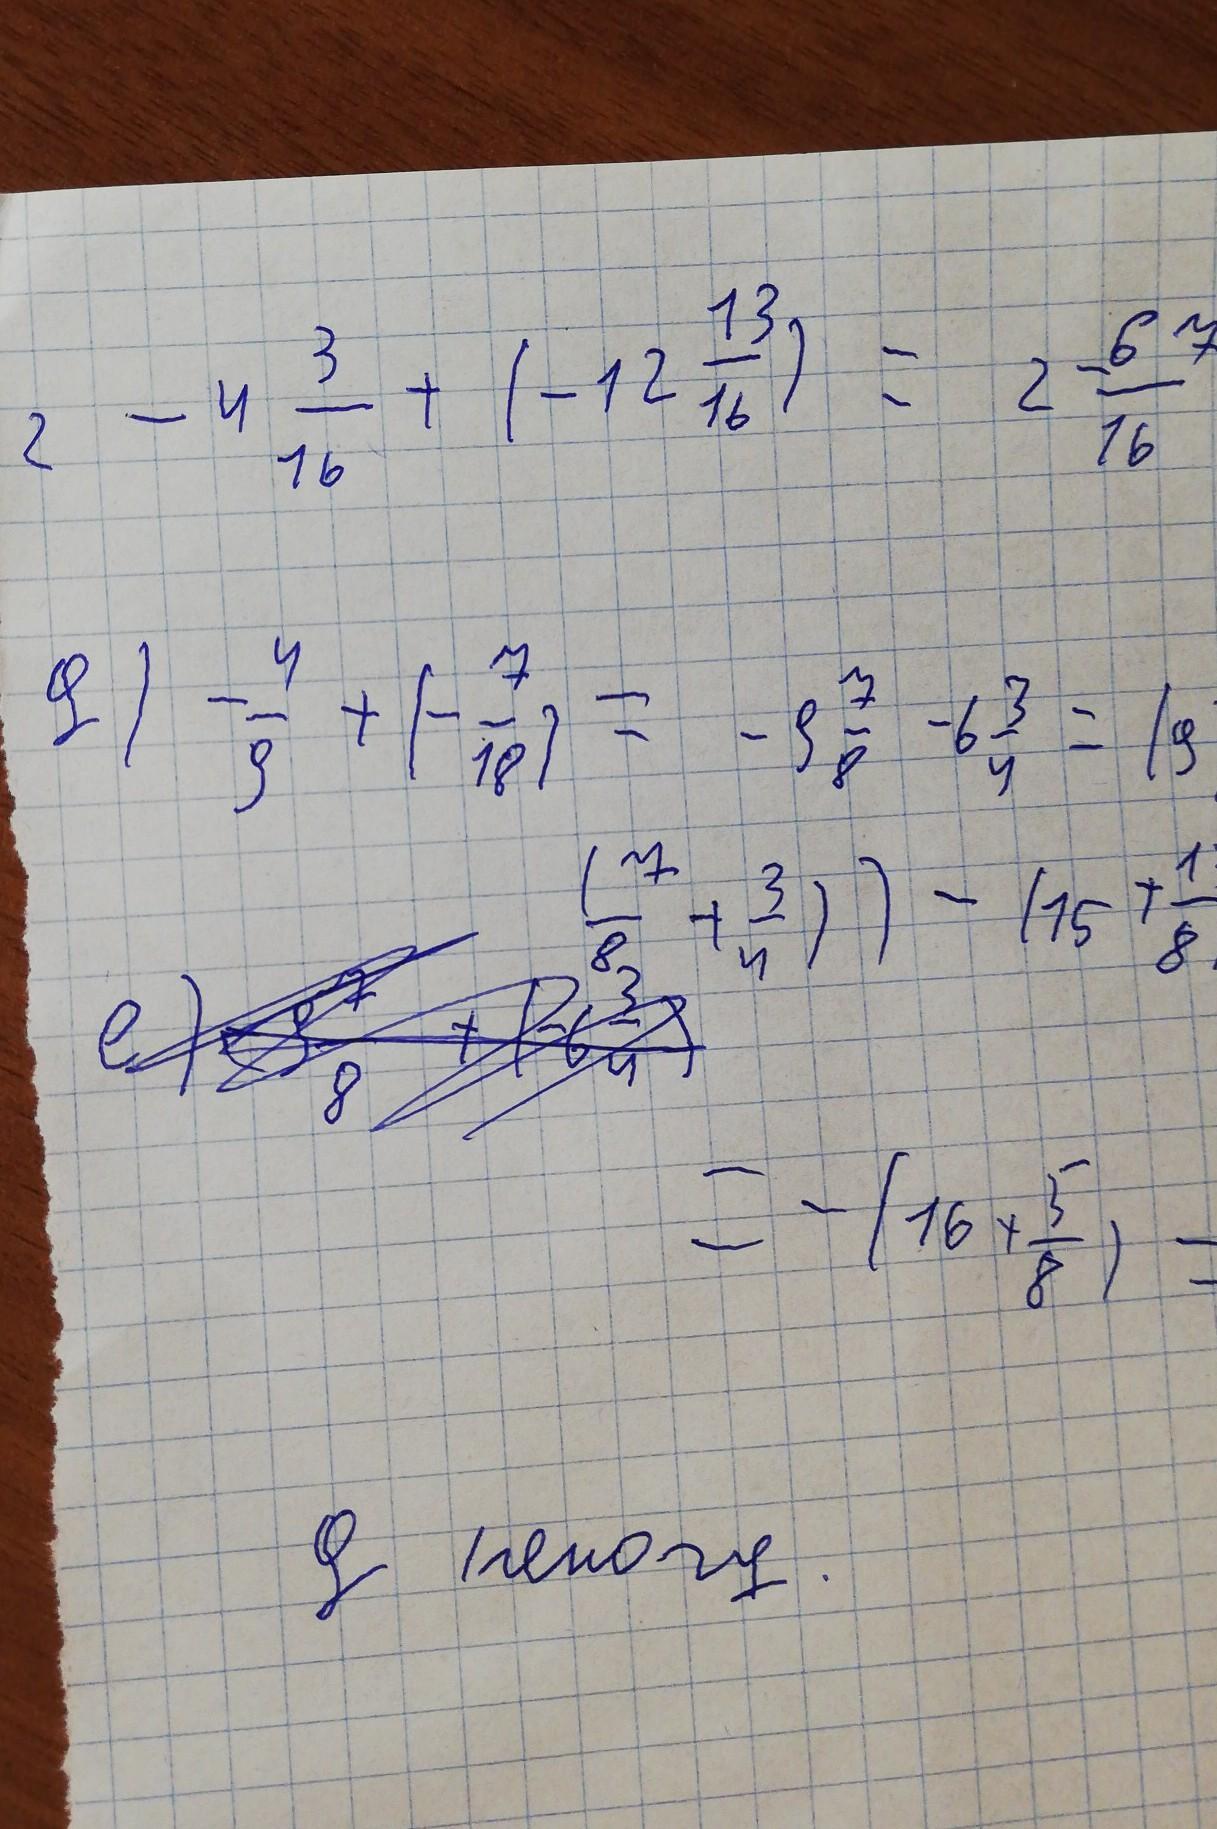 г - 4 3/16 + (-12 13/16) = 2 -67/16
д) -4/9 + (-7/18) = -9 7/8 -6 3/4 = (9
(7/8 + 3/4)) - (15 + 1/8
е) 7/8 + (-6 3/4)
= -(16 + 5/8) =
д